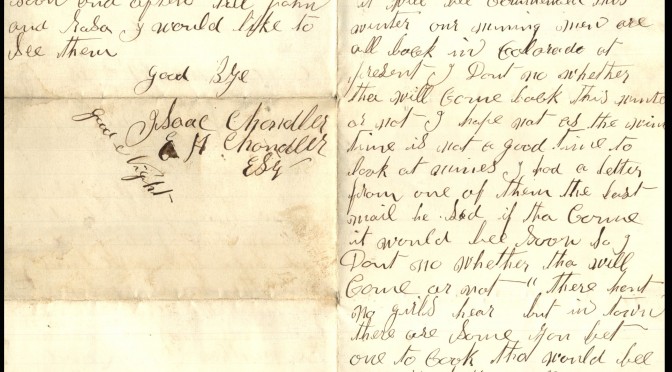 soon and often tell John
and Sada I would like to
see them
Good Bye
Isaac Chandler
E H Chandler
Esq
good Night
it will bee commenced this
winter our mining men are
all back in Colorado at
present I Dont no whether
tha will Come back this winte
or not I hope not as the win
time is not a good time to
look at mines I had a letter
from one of them the last
mail he Sed if tha Come
it would bee Soon So I
Dont no whether tha will
Come or not " there hant
no girls hear but in town
there are Some you bet
one to Cook tha would bee